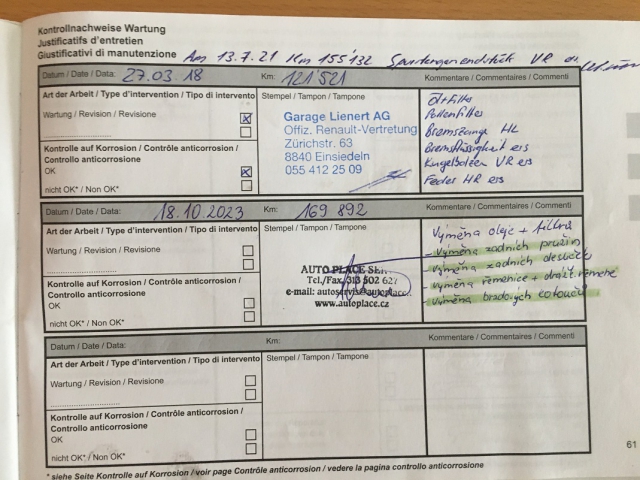 Kontrollnachweise Wartung
Justificatifs d'entretien
Giustificativi di manutenzione Am 13.7.21 Km 155'132 Spurstangenendstück VR
Datum / Date / Data: 27.03.18 Km: 121'521 Kommentare / Commentaires / Commenti
Art der Arbeit / Type d'intervention / Tipo di intervento Stempel / Tampon / Tampone
Wartung / Revision / Revisione
Kontrolle auf Korrosion / Contrôle anticorrosion /
Controllo anticorrosione
OK
nicht OK* / Non OK*
Garage Lienert AG
Offiz. Renault-Vertretung
Zürichstr. 63
8840 Einsiedeln
055 412 25 09
Ölfilter
Pollenfilter
Bremszange HL
Bremsflüssigkeit ers
Kugelbolzen VR ers
Feder HR ers
Datum / Date / Data: 18.10.2023 Km: 169 892 Kommentare / Commentaires / Commenti
Art der Arbeit / Type d'intervention / Tipo di intervento Stempel / Tampon / Tampone
Wartung / Revision / Revisione
Kontrolle auf Korrosion / Contrôle anticorrosion /
Controllo anticorrosione
OK
nicht OK* / Non OK*
AUTO PLACE
Tel./Fax 313 502 627
e-mail: autoservis@autoplace.
www.autoplace.cz
Výměna oleje + filtrů
- Výměna zadních pružin
- Výměna zadních
- Výměna řemenice + drážk. řemene
- Výměna kotoučů
Datum / Date / Data: Km: Kommentare / Commentaires / Commenti
Art der Arbeit / Type d'intervention / Tipo di intervento Stempel / Tampon / Tampone
Wartung / Revision / Revisione
Kontrolle auf Korrosion / Contrôle anticorrosion /
Controllo anticorrosione
OK
nicht OK* / Non OK*
* siehe Seite Kontrolle auf Korrosion / voir page Contrôle anticorrosion / vedere la pagina controllo anticorrosione
61